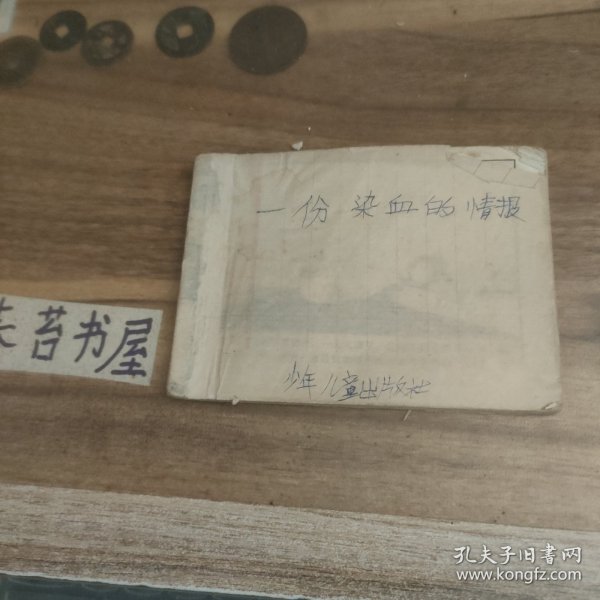 一份染血的情报
少年儿童出版社
苔书屋
孔夫子旧书网
www.kongfz.com